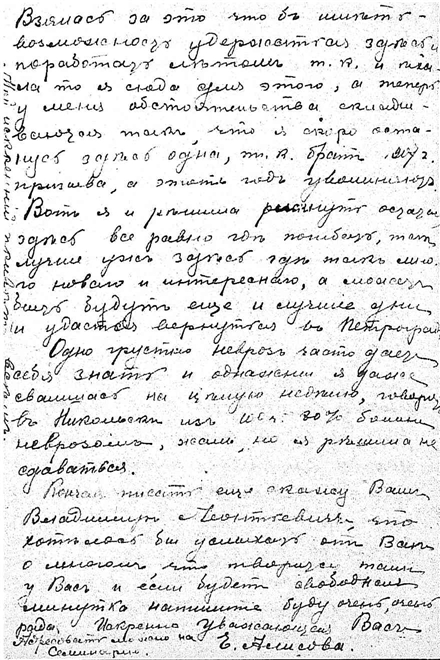 Взялась за это что бъ имѣть
возможность удержаться здѣсь и
поработать лѣтомъ т. к. и ѣха-
ла то я сюда для этого, а теперь
у меня обстоятельства склады-
ваются такъ, что я скоро оста-
нусь здѣсь одна, т. к. братъ
призыва, а этотъ годъ
Вотъ я и рѣшила рискнуть остаться
здѣсь все равно гдѣ погибать, такъ
лучше ужъ здѣсь гдѣ такъ мно-
го новаго и интереснаго, а можетъ
быть будутъ еще и лучшіе дни
и удастся вернуться въ Петроградъ
Одно грустно неврозъ часто даетъ
себя знать и однажды я даже
свалилась на цѣлую недѣлю, говорятъ
въ Никольскѣ изъ 80%
неврозомъ, но я рѣшила не
сдаваться.
Кончая писать еще скажу Вамъ
Владимиръ Леонтьевичъ, что
хотѣлось бы услыхать отъ Васъ
о многомъ что творится тамъ
у Васъ и если будетъ свободная
минутка напишите буду очень, очень
рада. Искренно уважающая Васъ
Е. Алисова.
Адресовать можно на
Семинарію.
Мой искренній привѣтъ